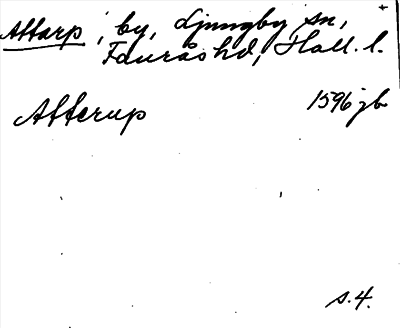 Attarp, by, Ljungby sn,
Faurås hd, Hall. l.
Atterup 1596 jb
s. 4.